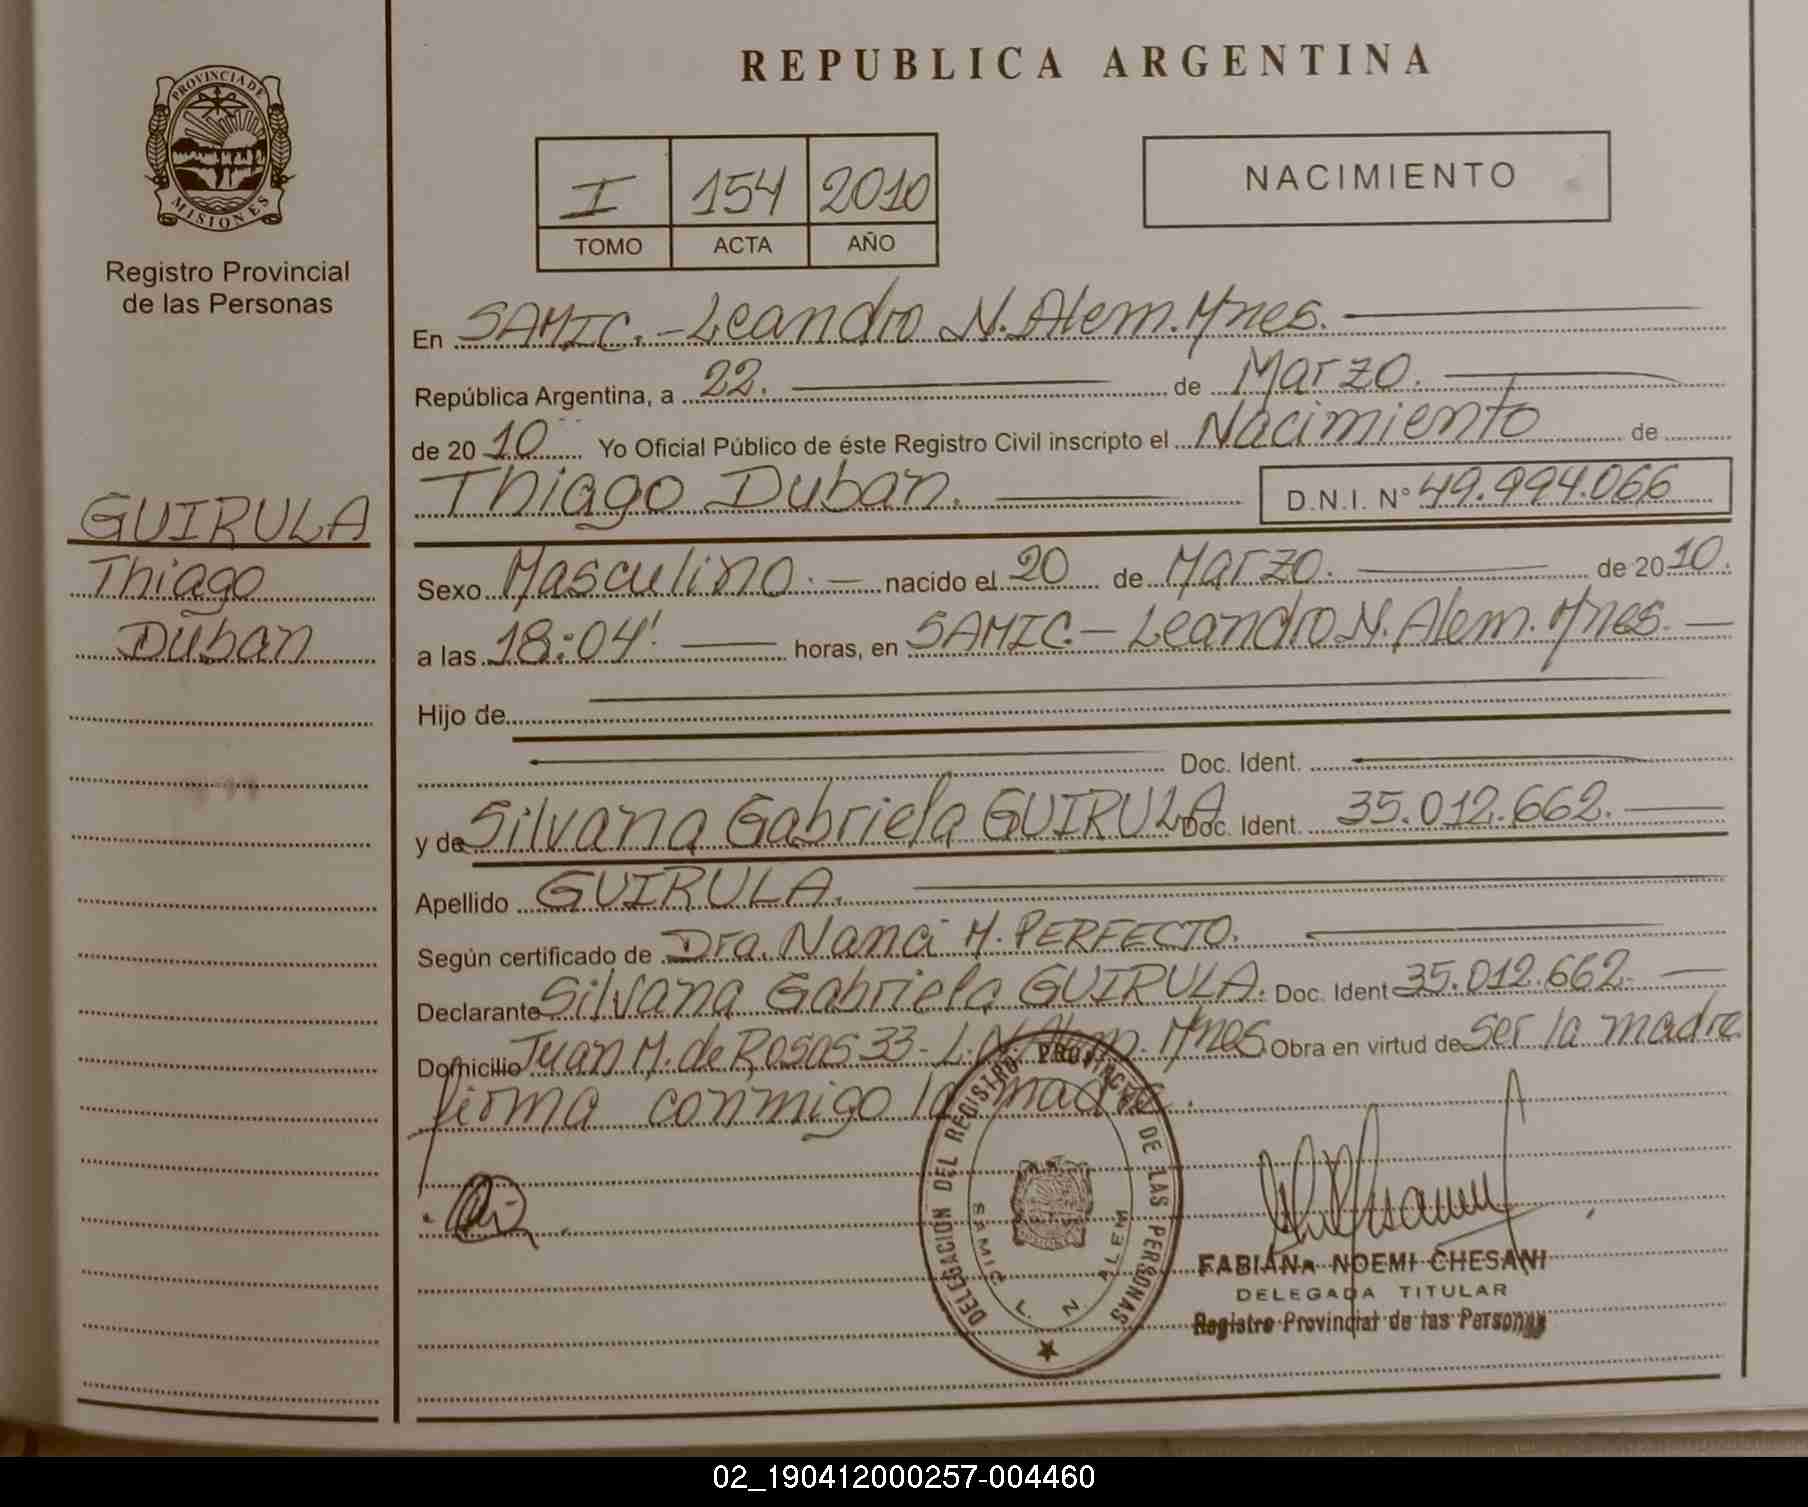 PROVINCIA DE
MISIONES
Registro Provincial
de las Personas
GUIRULA
Thiago
Duban
REPUBLICA ARGENTINA
I 154 2010
TOMO ACTA AÑO
NACIMIENTO
En SAMIC.-Leandro N. Alem. Mnes.
República Argentina, a 22. de Marzo.
de 2010 Yo Oficial Público de éste Registro Civil inscripto el Nacimiento de
Thiago Duban. D.N.I. N° 49.994.066
Sexo Masculino.- nacido el 20 de Marzo. de 2010.
a las 18:04' horas, en SAMIC.- Leandro N. Alem. Mnes.
Hijo de
Doc. Ident.
y de Silvana Gabriela GUIRULA Doc. Ident. 35.012.662.
Apellido GUIRULA.
Según certificado de Dra. Nanci M. PERFECTO.
Declarante Silvana Gabriela GUIRULA. Doc. Ident 35.012.662.
Domicilio Juan M. de Rosas 33-L.N. Alem. Mnes. Obra en virtud de ser la madre
firma conmigo la madre.
DELEGACION DEL REGISTRO PROVINCIAL DE LAS PERSONAS
SAMIC L. N. ALEM
FABIANA NOEMI CHESANI
DELEGADA TITULAR
Registro Provincial de las Personas
02_190412000257-004460